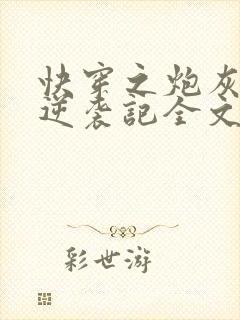 快穿之炮灰
逆袭記全文
彩世游